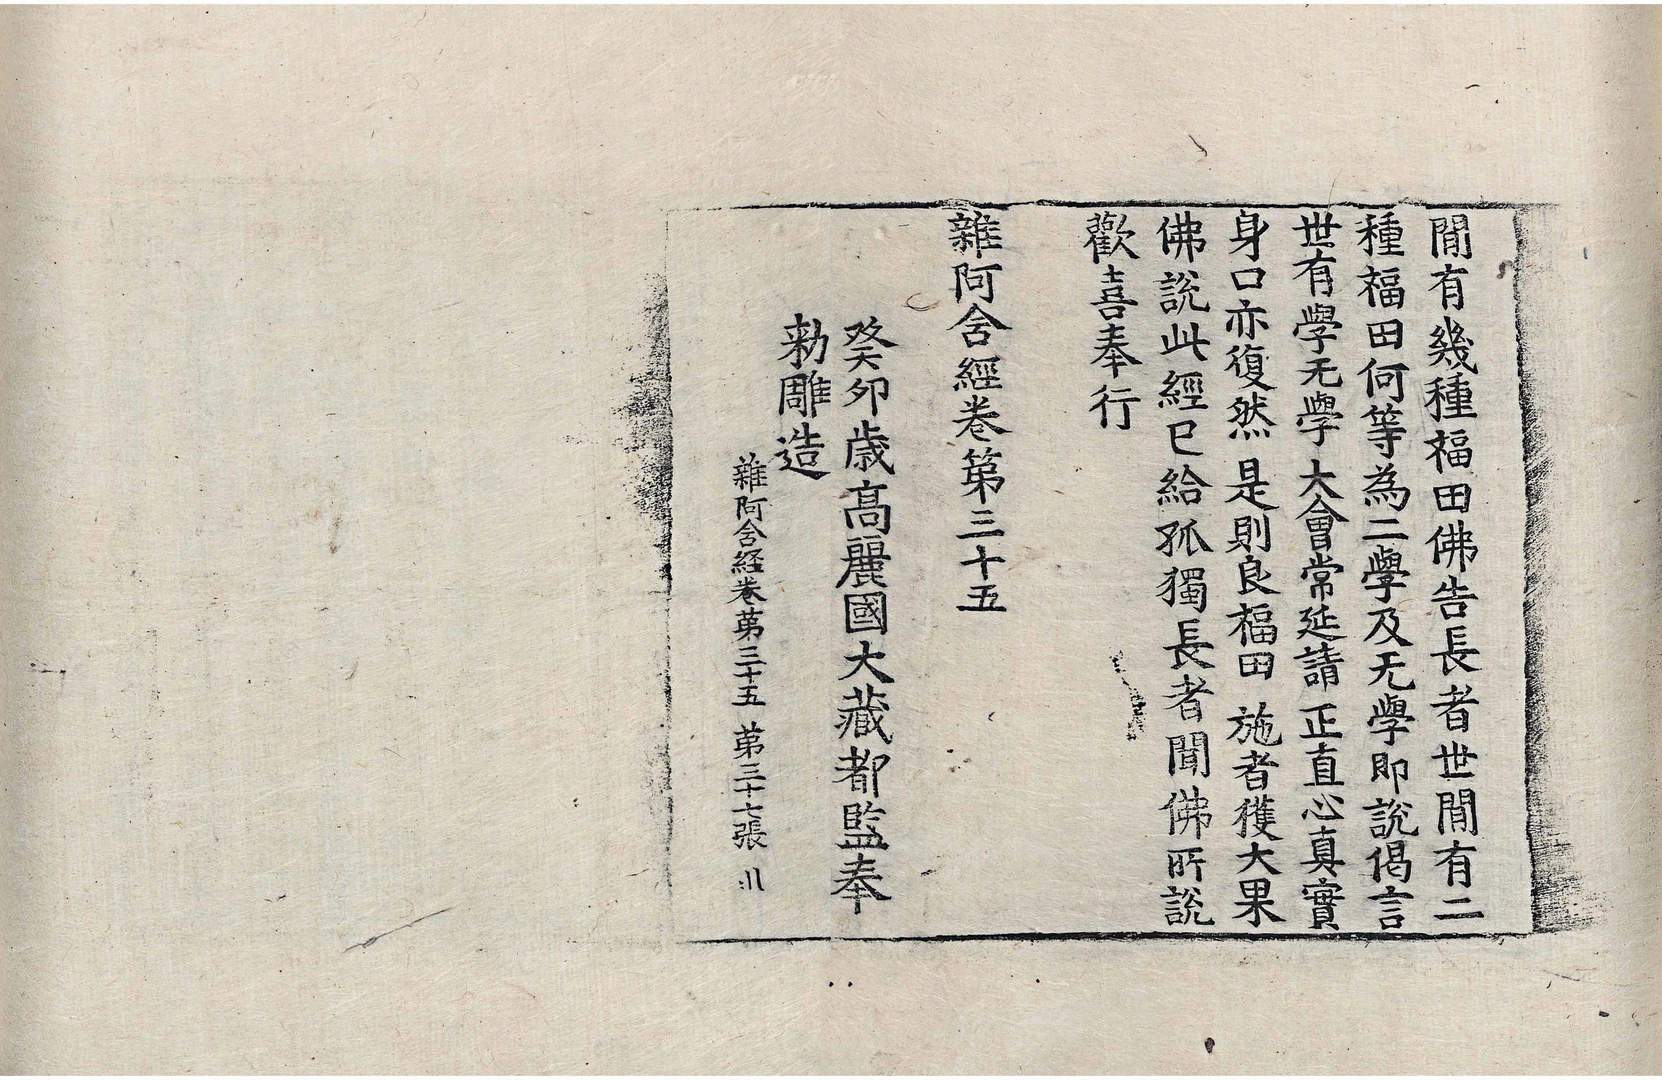 閒有幾種福田佛告長者世閒有二
種福田何等為二學及无學即說偈言
世有學无學 大會常延請 正直心真實
身口亦復然 是則良福田 施者獲大果
佛說此經已給孤獨長者聞佛所說
歡喜奉行
雜阿含經卷第三十五
癸卯歲高麗國大藏都監奉
勅雕造
雜阿含経卷第三十五 第三十七張